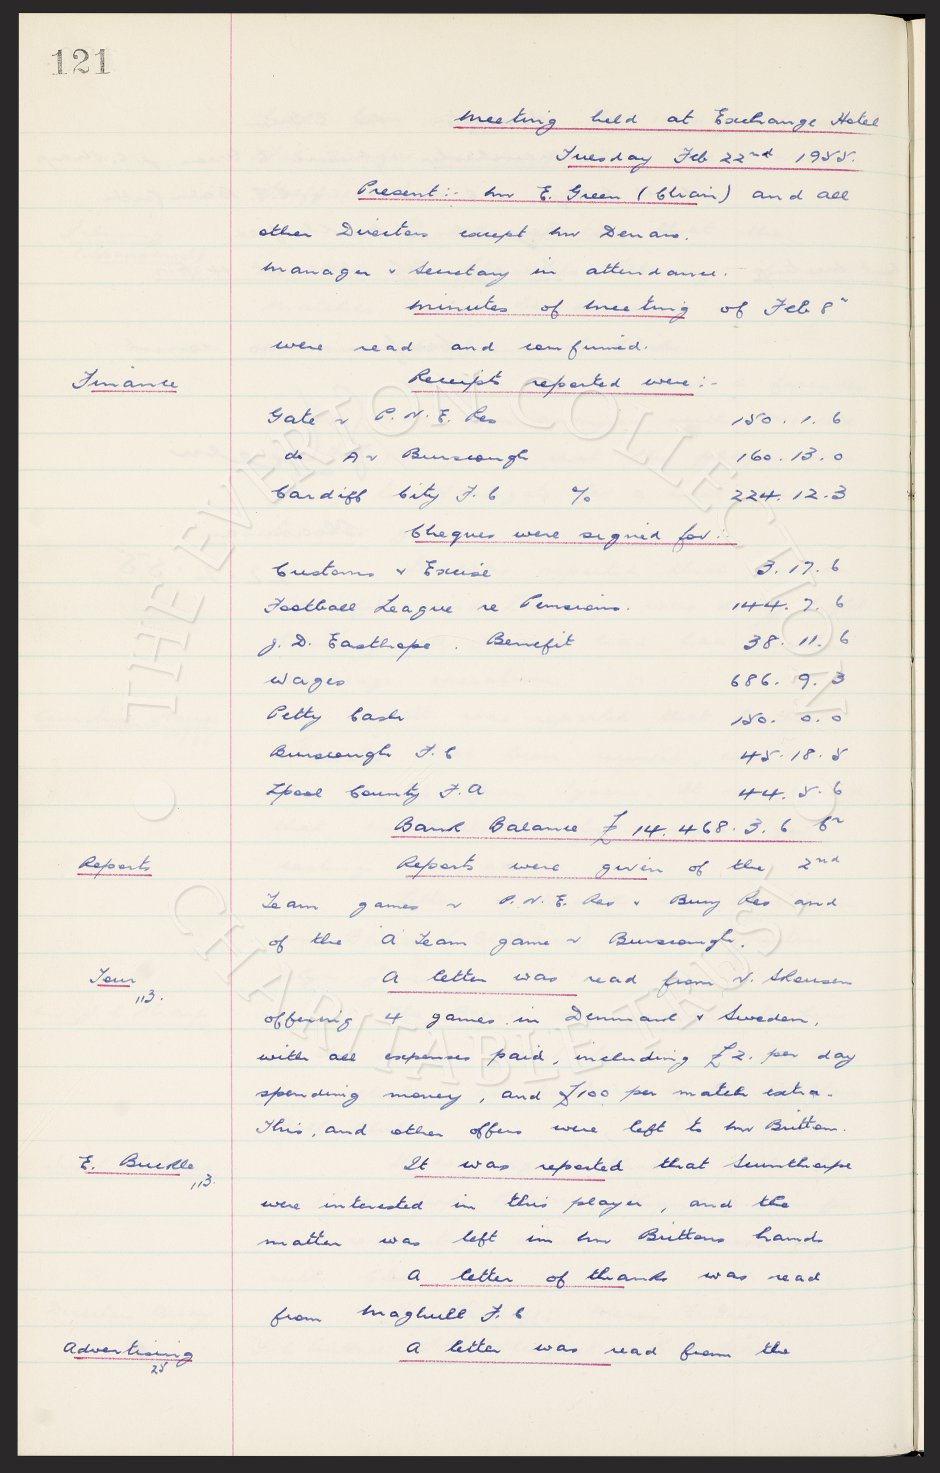 121
Meeting held at Exchange Hotel
Tuesday Feb 22nd 1955.
Present:- Mr E. Green (Chair) and all
other Directors except Mr
Manager & Secretary in attendance.
Minutes of Meeting of Feb 8"
were read and confirmed.
Finance
Receipts reported were:-
Gate v P.N.E. Res 150. 1. 6
do A v Burscough 160. 13. 0
Cardiff City F.C % 224. 12. 3
Cheques were signed for:-
Customs & Excise 3. 17. 6
Football League re Pensions. 144. 7. 6
J. D. Easthope. Benefit 38. 11. 6
Wages 686. 9. 3
Petty Cash 150. 0. 0
Burscough F.C 45. 18. 5
Lpool County F.A 44. 5. 6
Bank Balance £14.468. 3. 6 Cr
Reports
Reports were given of the 2nd
Team games v P.N.E. Res & Bury Res and
of the 'A' Team game v Burscough.
Tour
113.
A letter was read from
offering 4 games in Denmark & Sweden,
with all expenses paid, including £2. per day
spending money, and £100 per match extra.
This, and other offers were left to Mr Britton.
E. Buckle
113.
It was reported that Scunthorpe
were interested in this player, and the
matter was left in Mr Brittons hands
A letter of thanks was read
from Maghull F.C
Advertising
25
A letter was read from the
© THE EVERTON COLLECTION
CHARITABLE TRUST